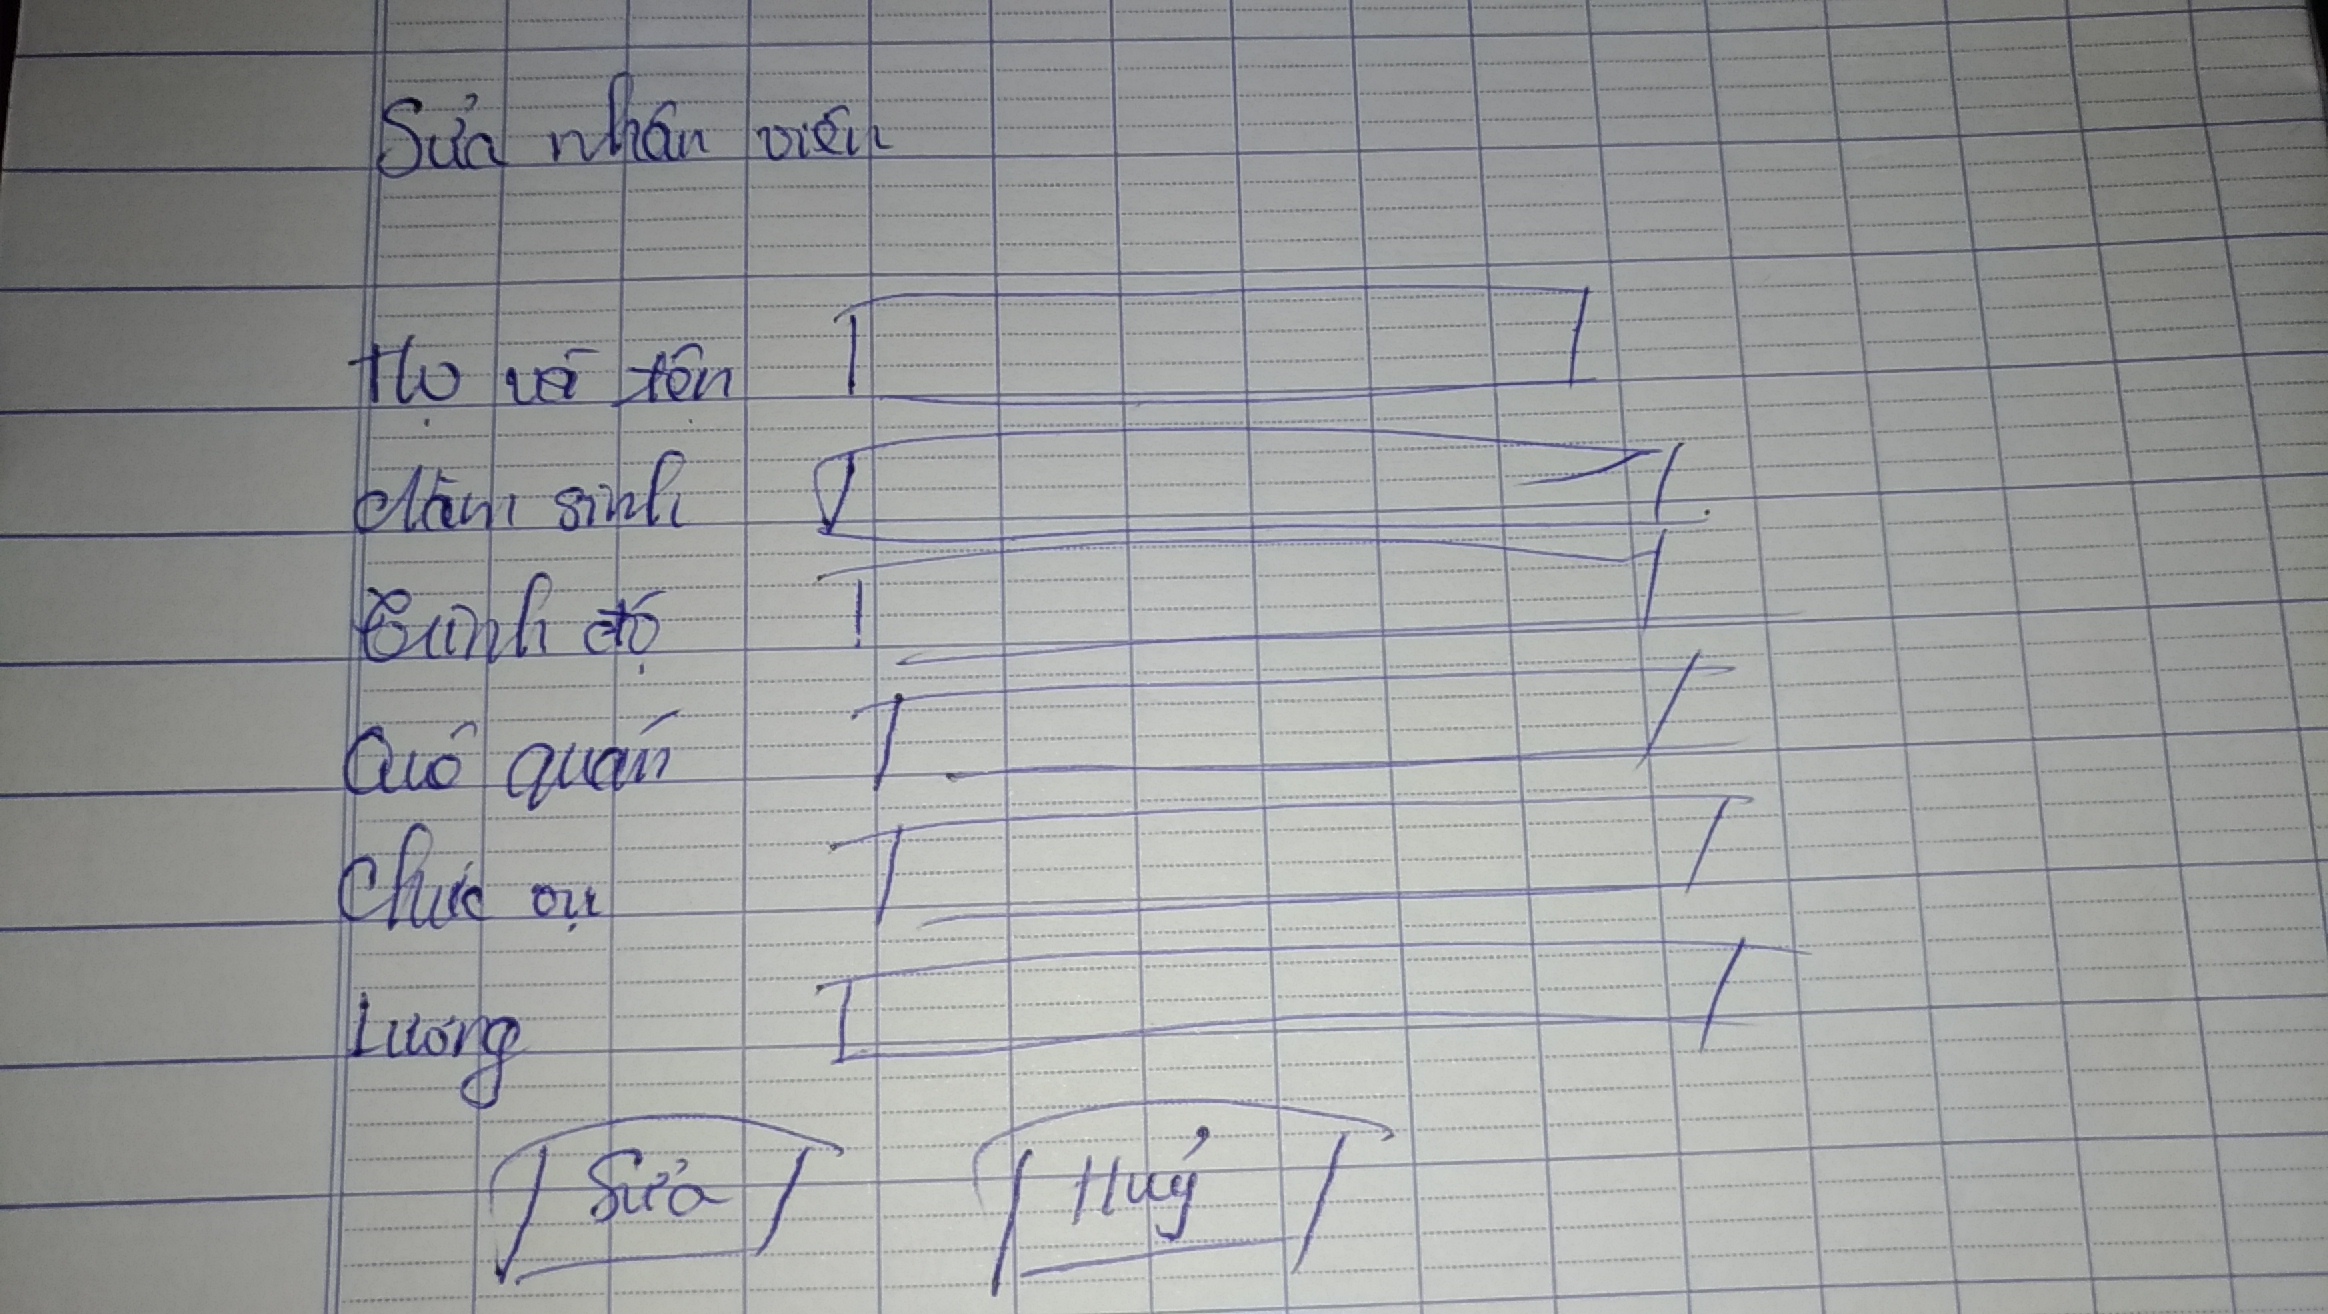 Sửa nhân viên
Họ và tên
Năm sinh
Trình độ
Quê quán
Chức vụ
Lương
Sửa Huỷ